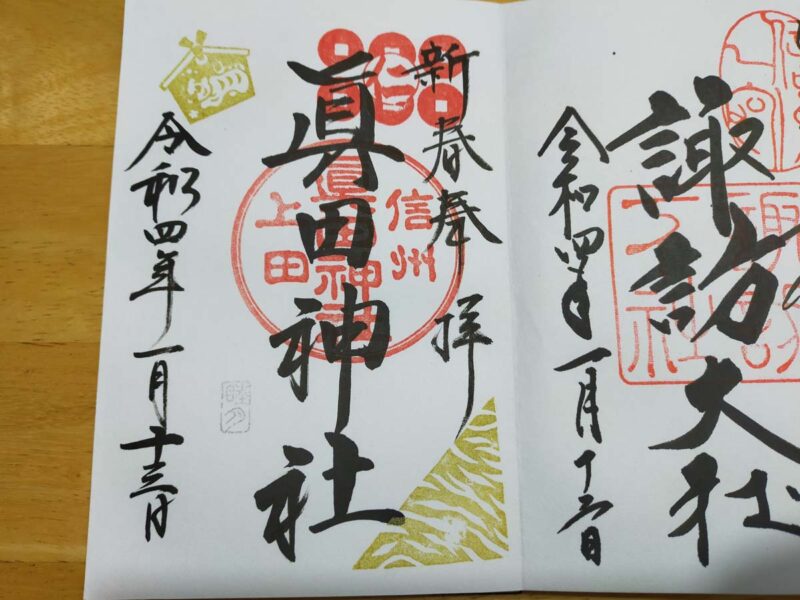 新春奉拝
眞田神社
令和四年一月十三日
信州
眞田神社
上田
諏訪大社
令和四年一月十三日